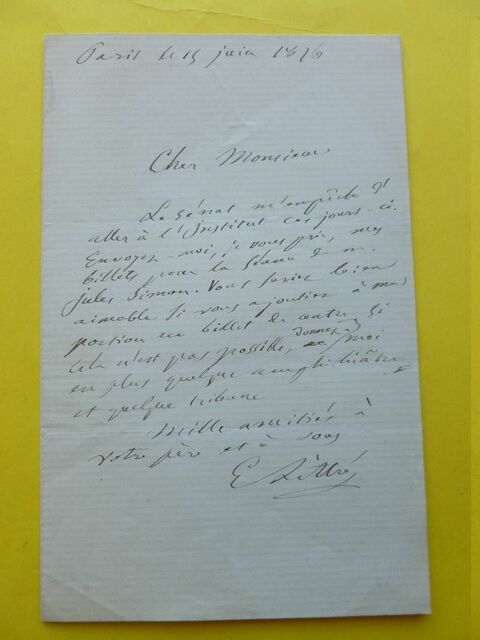 Paris le 15 juin 1876
Cher Monsieur
Le Sénat m'empêche d'
aller à l'Institut ces jours-ci.
Envoyez-moi, je vous prie, mes
billets pour la séance de m.
Jules Simon. Vous seriez bien
aimable si vous ajoutiez à ma
portion un billet de centre. Si
cela n'est pas possible, donnez-moi
en plus quelque amphithéâtre
et quelque tribune
Mille amitiés à
votre père et à vous
E Littré